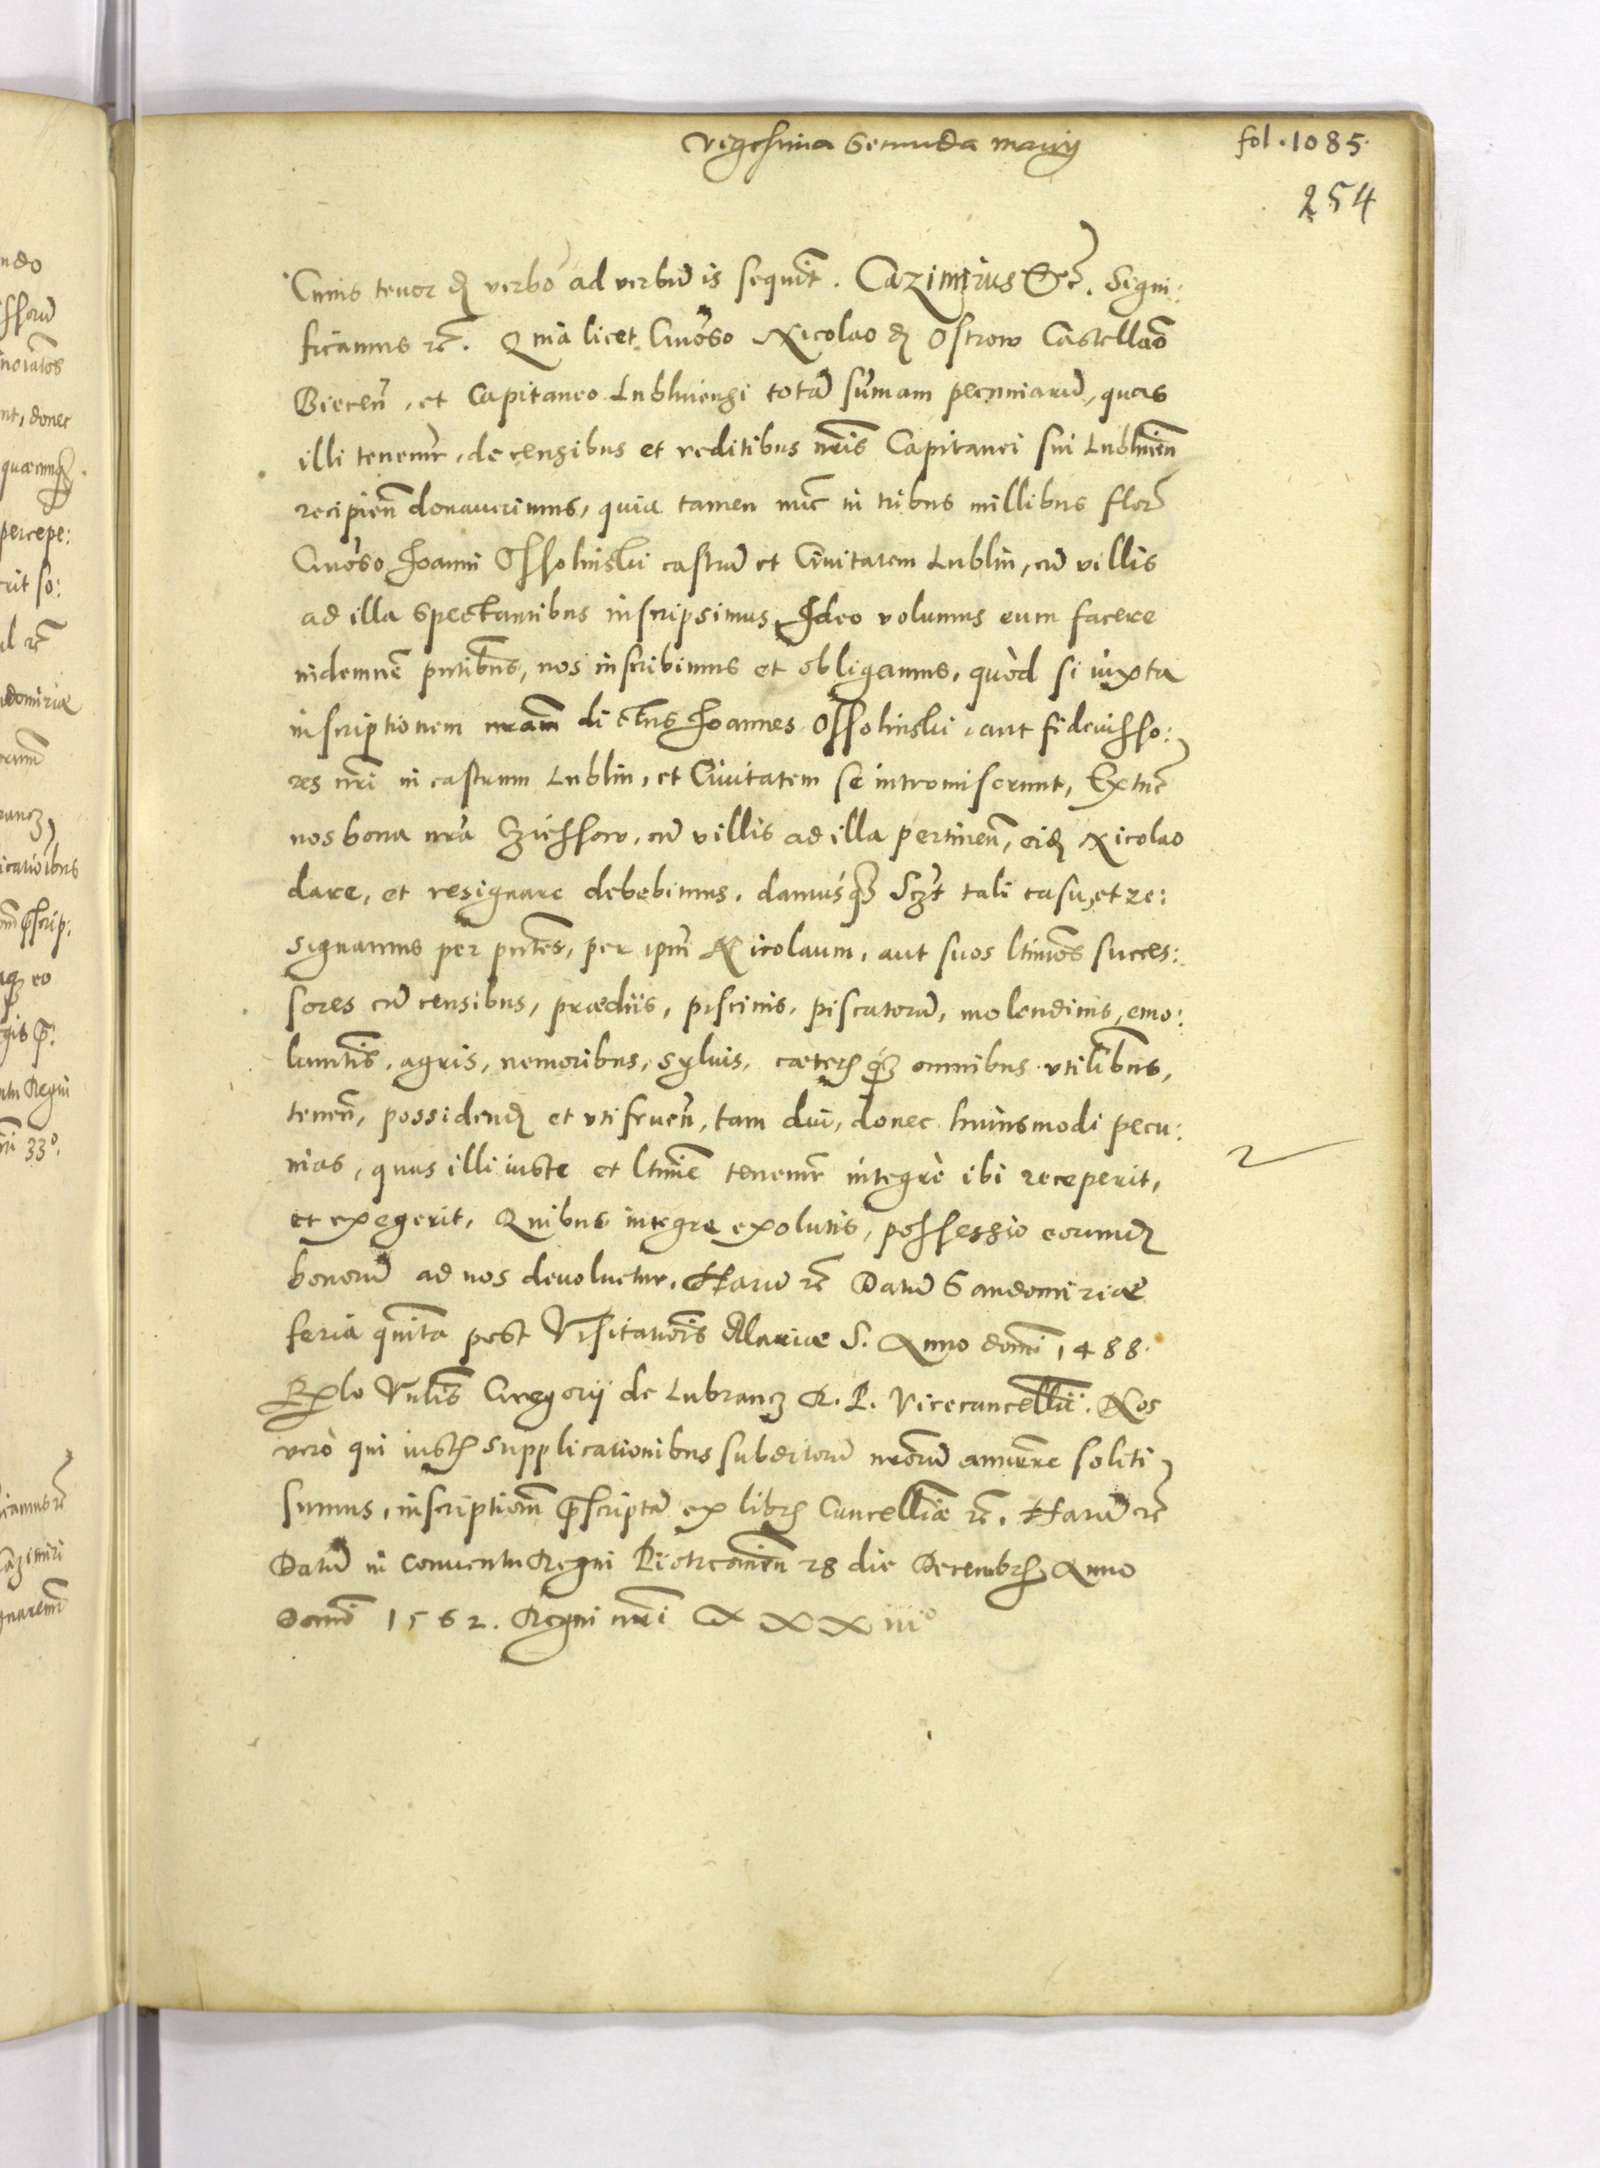 Vigesima Secunda marcij
fol. 1085.
254
Cuius tenor de verbo ad verbũ is sequit̃. Cazimirus Etc̃. Signi:
ficamus etc̃. Quia licet Gnõso Nicolao de Ostrow Castellaõ
Biecen̄, et Capitaneo Lublinensi totã sum̃am pecuniarũ, quas
illi tenemr̃, de censibus et reditibus nr̃is Capitanei sui Lublinen̄
recipien̄ donaverimus, quia tamen nũc in tribus millibus flor̃
Gnõso Joanni Ossolinski castrũ et Civitatem Lublin, cũ villis
ad illa spectantibus inscripsimus, Ideo volumus eum facere
indemnẽ pñtibus, nos inscribimus et obligamus, quòd si iuxta
inscriptionem nr̃am dictus Joannes Ossolinski, aut fideiusso:
res nr̃i in castrum Lublin, et Civitatem se intromiserunt, Extũc
nos bona nr̃a , cũ villis ad illa pertinen̄, eidẽ Nicolao
dare, et resignare debebimus, damusq̃ tali casu, et re:
signamus per pñtes, per ipm̃ Nicolaum, aut suos ltimos succes:
sores cũ censibus, prædiis, piscinis, piscatorũ, molendinis, emo:
lumtis, agris, nemoribus, sylvis, cæterisq̃ omnibus utilibus,
tenen̄, possidend̃ et utifruen̄, tam diu, donec huiusmodi pecu:
nias, quas illi iuste et ltimẽ tenemr̃ integrè ibi receperit,
et exegerit, Quibus integre exolutis, possessio eorund̃
bonorũ ad nos devoluetur, Harũ etc̃ Datũ Sandomiriæ
feria quinta post Visitationis Mariæ S. Anno domini 1488.
Exlo Vnlis Gregorij de Lubrancz R. P. Vicecancellii. Nos
verò qui iustis supplicationibus subditorũ nr̃orũ annuere soliti
sumus, inscriptionẽ p̃scriptã ex libris Cancelliæ etc̃. Harũ etc̃
Datũ in Conventu Regni Piotrcovien̄ 28 die Decembris Anno
Domi 1562. Regni nr̃i XXXiii°